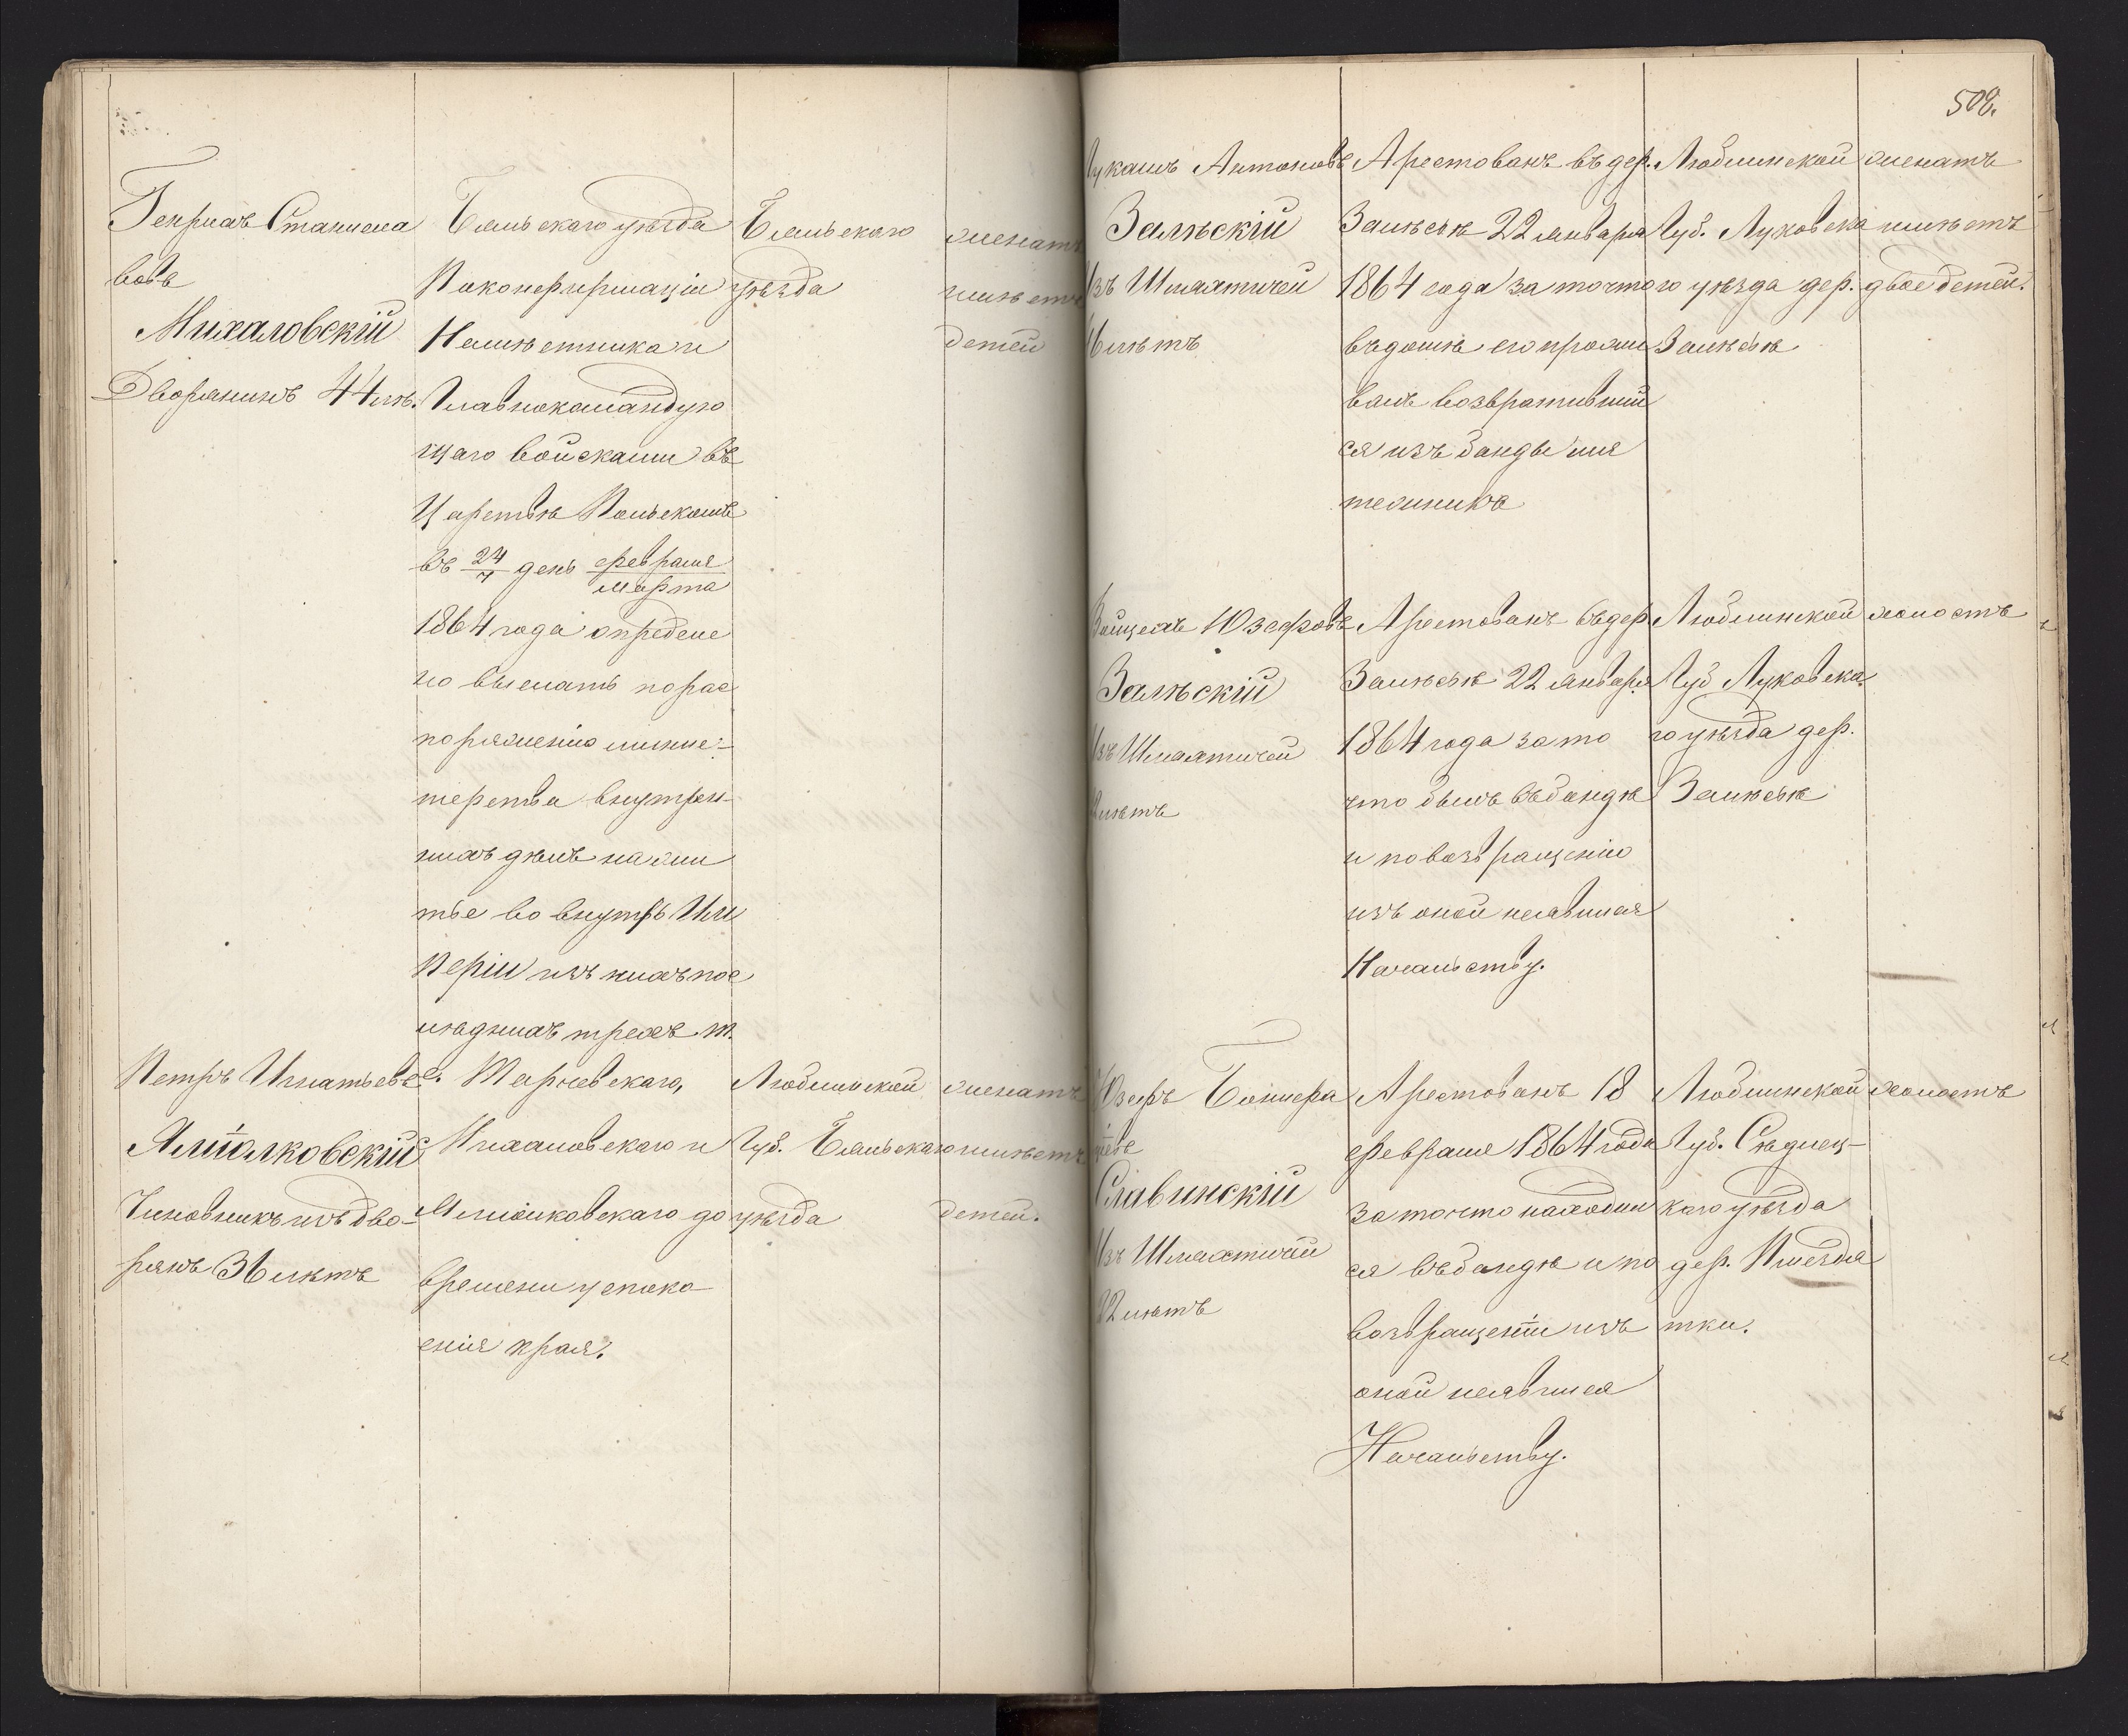 Генрихъ Станисла
вовъ
Михаловскій
Дворянинъ 44 лѣ.
Бѣльскаго уѣзда
По конфирмаціи
Намѣстника и
Главнокомандую
щаго войсками въ
Царствѣ Польскомъ
въ 24/7 день февраля/марта
1864 года опредѣле
но выслать по рас
поряженію минис-
терства внутрен-
нихъ дѣлъ на жи
тье во внутрь Им
періи изъ нихъ пос
лѣднихъ трехъ т.
Бѣльскаго
уѣзда
женатъ
имѣетъ
детей
Петръ Игнатьевъ
Ямiолковскій
Чиновникъ изъ дво-
рянъ 36 лѣтъ
с. Тарчевскаго,
Михаловскаго и
Ямiолковскаго до
времени успоко
енія края.
Люблинской
Губ. Бѣльскаго
уѣзда
женатъ
имѣетъ
детей.
508.
Лукашъ Антоновъ
Залѣскій
Изъ Шляхтичей
лѣтъ
Арестованъ въ дер.
Залѣсьѣ 22 января
1864 года за то что
въ домѣ его прожи
валъ возвративший
ся изъ банды мя
тежникъ
Люблинской
Губ. Луковска
го уѣзда дер.
Залѣсьѣ
женатъ
имѣетъ
двое детей.
Войцехъ Юзефовъ
Залѣскій
Изъ Шляхтичей
лѣтъ
Арестованъ въ дер
Залѣсьѣ 22 января
1864 года за то
что былъ въ бандѣ
и по возвращеніи
изъ оной неявился
Начальству.
Люблинской
Губ Луковска
го уѣзда дер.
Залѣсьѣ
холостъ
Юзефъ Бонифа
Славинскій
Изъ Шляхтичей
22 лѣтъ
Арестованъ 18
февраля 1864 года
за то что находил
ся въ бандѣ и по
возвращеніи изъ
оной неявился
Начальству.
Люблинской
Губ. Сѣдлец-
каго уѣзда
дер.
тки.
холостъ